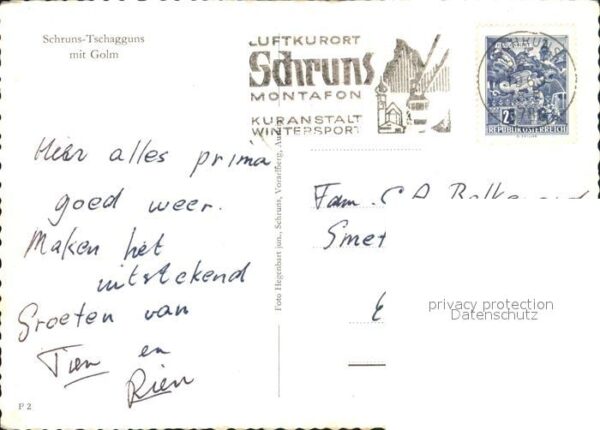 Schruns-Tschagguns
mit Golm
LUFTKURORT
Schruns
MONTAFON
KURANSTALT
WINTERSPORT
SCHRUNS
2
REPUBLIK ÖSTERREICH
Hier alles prima
goed weer.
Maken het
uitstekend
Groeten van
Tien en
Rien
P 2
Foto Hegenbart jun., Schruns, Vorarlberg, Aus
Fam.
Smet
privacy protection
Datenschutz